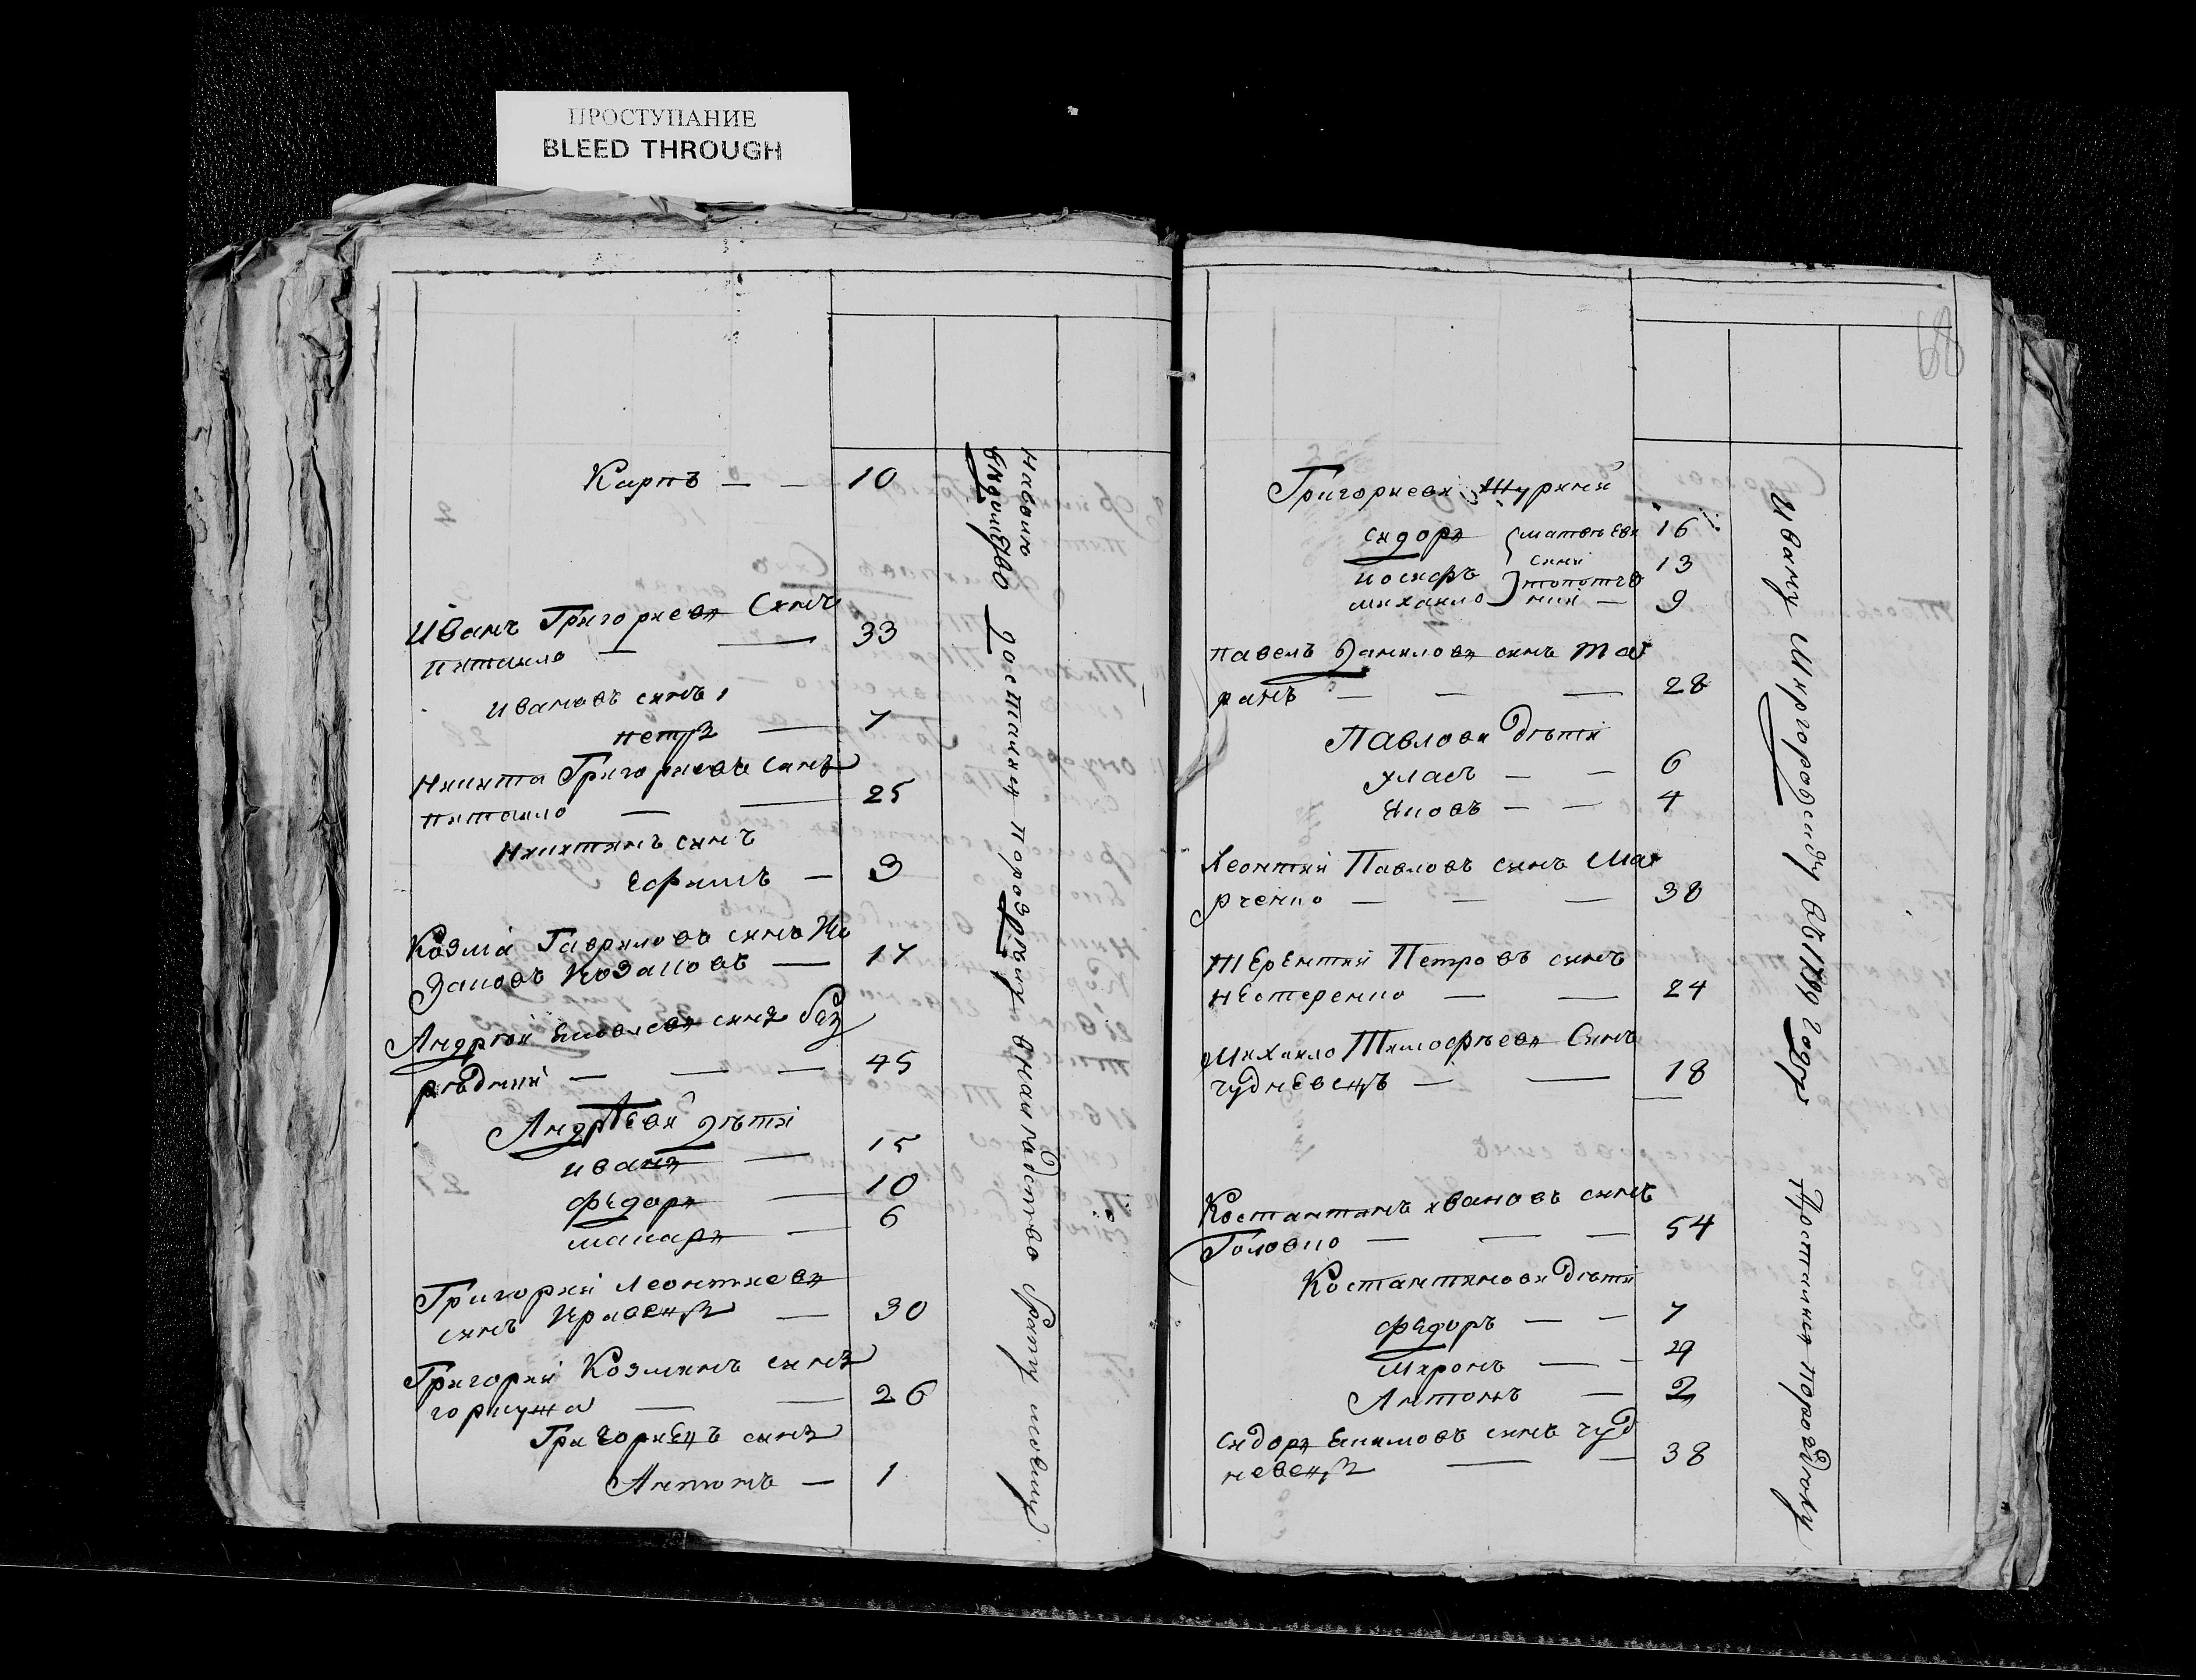 ПРОСТУПАНИЕ
BLEED THROUGH
Карпъ — — 10
Иванъ Григориевъ Синъ
пятакло — — 33
Ивановъ синъ,
петръ — 7
Никита Григориевъ Синъ
пятакло — — 25
Никитинъ синъ
Ефимъ — 3
Козма Гавриловъ синъ Ко
Заковъ Козаковъ — 17
Андрѣй синъ
— — — 45
Андрѣеви дѣти
иванъ — 15
федоръ — 10
макаръ — 6
Григорий Леонтиевъ
синъ Кравецъ — 30
Григорий Козминъ синъ
— — 26
Григориевъ синъ
Антонъ — 1
достался
68
Григориеви
сидоръ матвѣеви 16
иосифъ сини 13
михаило — 9
павелъ Даниловъ синъ та
ранъ — — — 28
Павлови дѣти
уласъ — — 6
Яковъ — — 4
Леонтий Павловъ синъ Ма
рченко — — — 38
Терентий Петровъ синъ
нестеренко — — 24
Михаило Тимофѣевъ Синъ
чудневецъ — — 18
Костантинъ ивановъ синъ
Головко — — — 54
Костантинови дѣти
федоръ — — 7
Миронъ — — 4
Антонъ — 2
сидоръ Екимовъ синъ чуд
невецъ — — 38
ивану Миргородскому въ году Достался